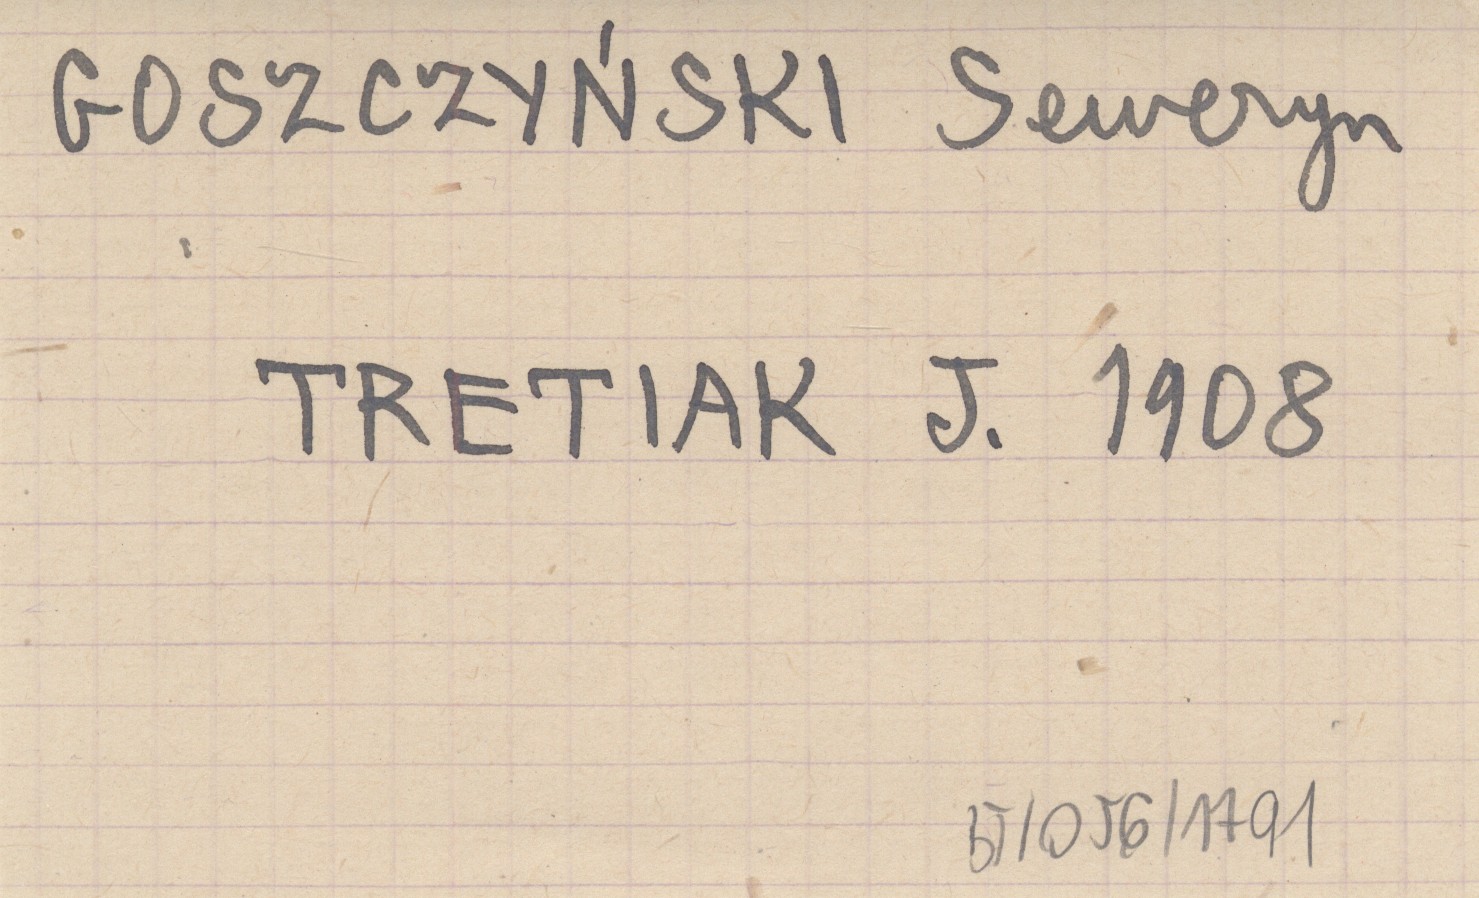 GOSZCZYŃSKI Seweryn
TRETIAK J. 1908
/056/1791